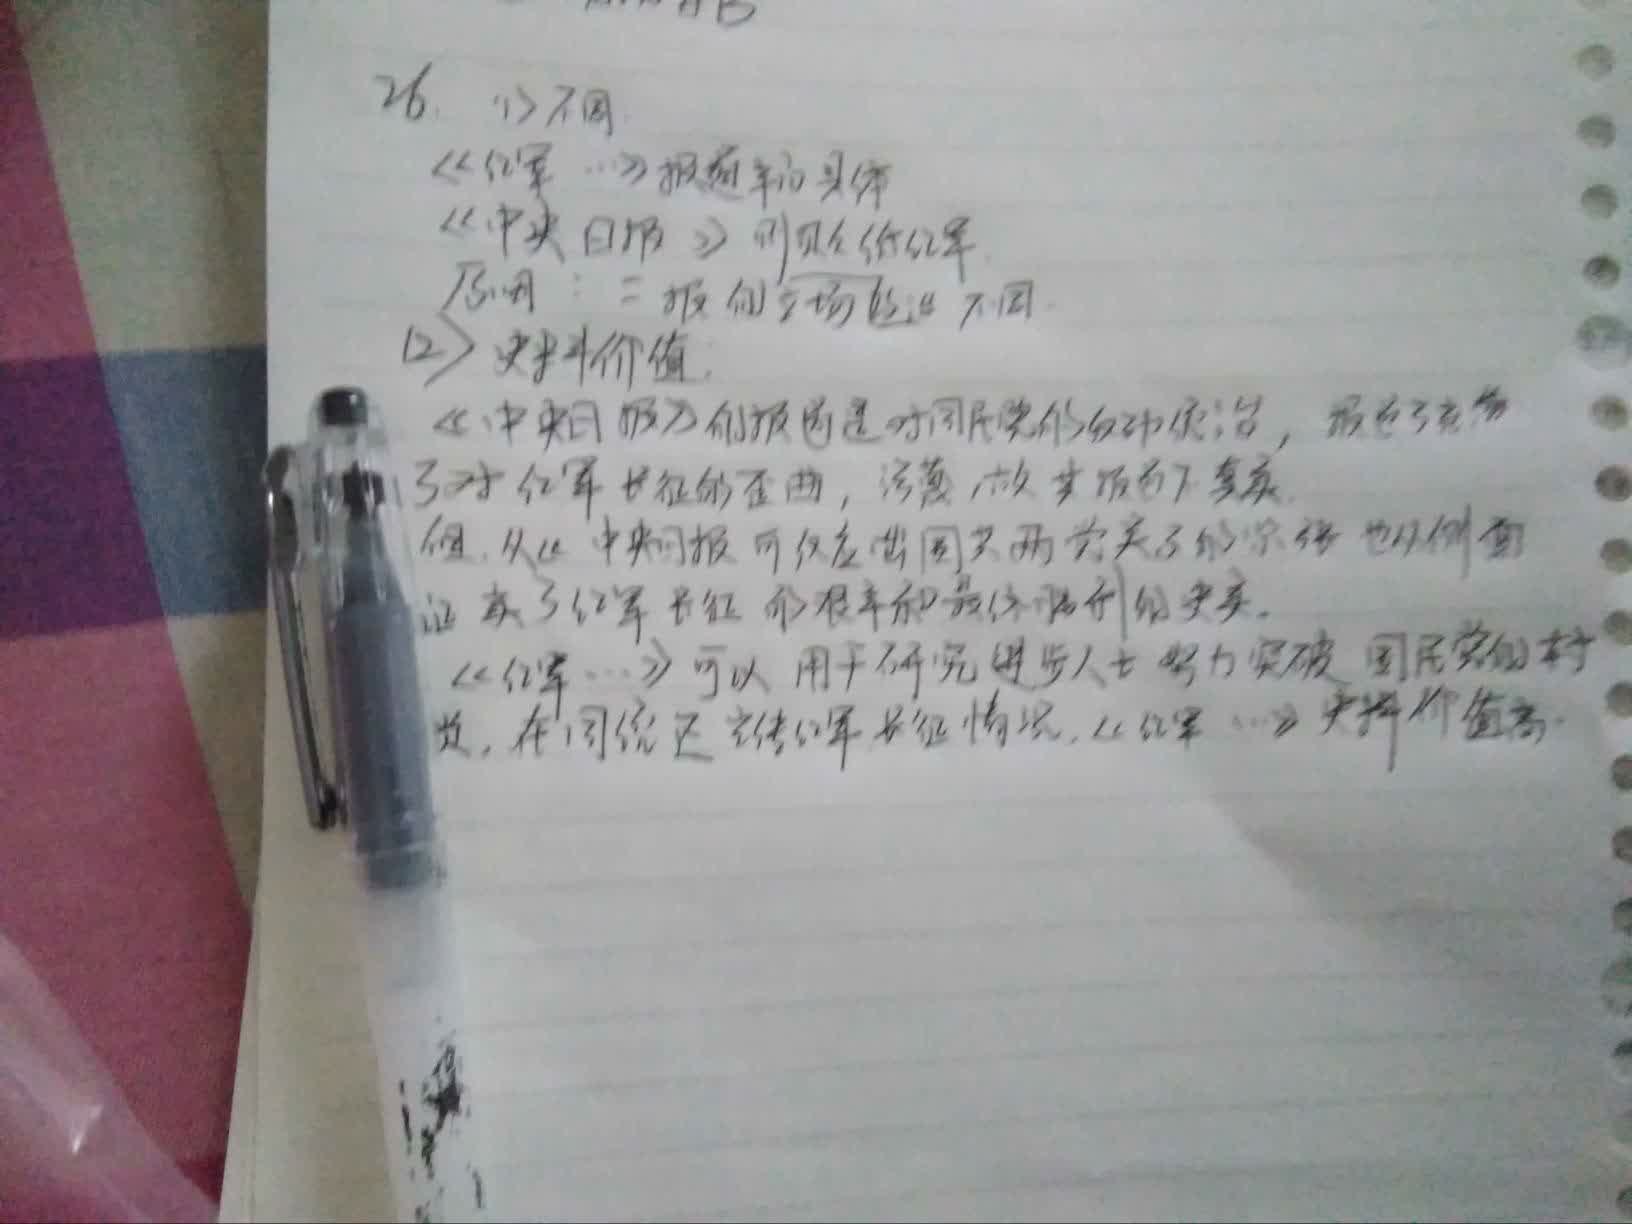 26. (1)不同.
《红军…》报道详尽具体
《中央日报》则贬低红军.
原因:二报的立场 不同.
(2)史料价值.
《中央日报》的报道是对国民党的 统治,
了对红军长征的歪曲,污蔑,故 不真实.
但,从《中央日报 可反应出国共两党关系的紧张 也从侧面
证实了红军长征的艰辛和最终胜利的史实.
《红军…》可以用于研究进步人士努力突破国民党的封
锁,在国统区宣传红军长征情况.《红军…》史料价值高.